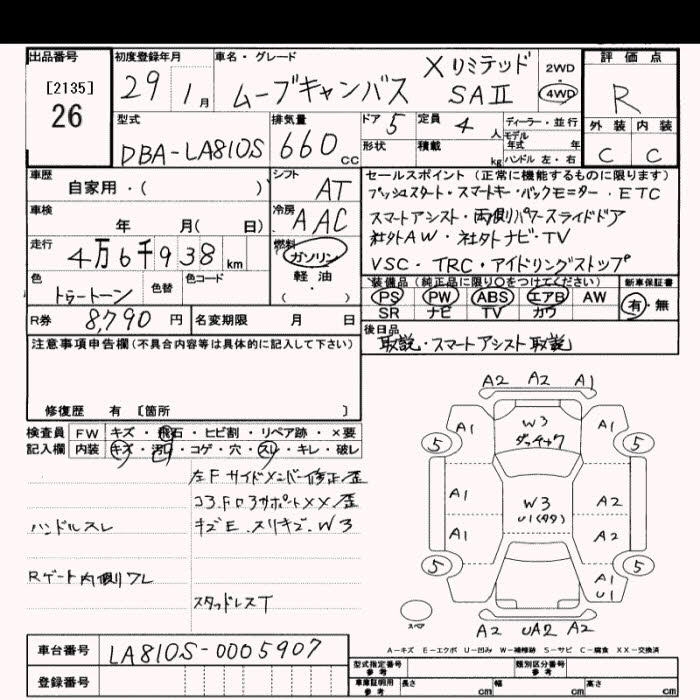 出品番号
[2135]
26
初度登録年月
29 1月
車名・グレード
ムーブキャンバス
Xリミテッド
SAⅡ
2WD
4WD
評価点
R
外装 内装
C C
型式
DBA-LA810S
排気量
660 cc
ドア 5
定員 4 人
形状
積載 kg
ディーラー・並行
モデル
年式 年
ハンドル 左・右
車歴
自家用・( )
シフト
AT
車検
年 月( 日)
冷房
AAC
走行
4万6千938 km
燃料
ガソリン
軽油
色
色替
色コード
R券 8,790 円
名変期限 月 日
セールスポイント (正常に機能するものに限ります)
プッシュスタート・スマートキー・バックモニター・ETC
スマートアシスト・両側パワースライドドア
社外AW・社外ナビ・TV
VSC・TRC・アイドリングストップ
装備品 (純正品に限り○をつけてください)
PS PW ABS エアB AW
SR ナビ TV カワ
新車保証書
有・無
後日品
取説・スマートアシスト取説
注意事項申告欄(不具合内容等は具体的に記入して下さい)
修復歴 有 [箇所 ]
検査員
記入欄
FW キズ・飛石・ヒビ割・リペア跡・×要
内装 キズ・汚れ・コゲ・穴・スレ・キレ・破レ
左Fサイドメンバー修正/歪
コ3.Fロ3サポートXX/歪
ハンドルスレ
キズE.スリキズ.W3
Rゲート内側ワレ
スタッドレスT
A2 A2 A1
A1 W3 A1
5 5
A1 W3 A2
U1
A1 A2
5 5
A1
U1
スペア
A2 UA2 A2
A-キズ E-エクボ U-凹み W-補修跡 S-サビ C-腐食 XX-交換済
車台番号
LA810S-0005907
登録番号
型式指定番号
参考
類別区分番号
参考
車庫証明用
参考
長さ cm
幅 cm
高さ cm